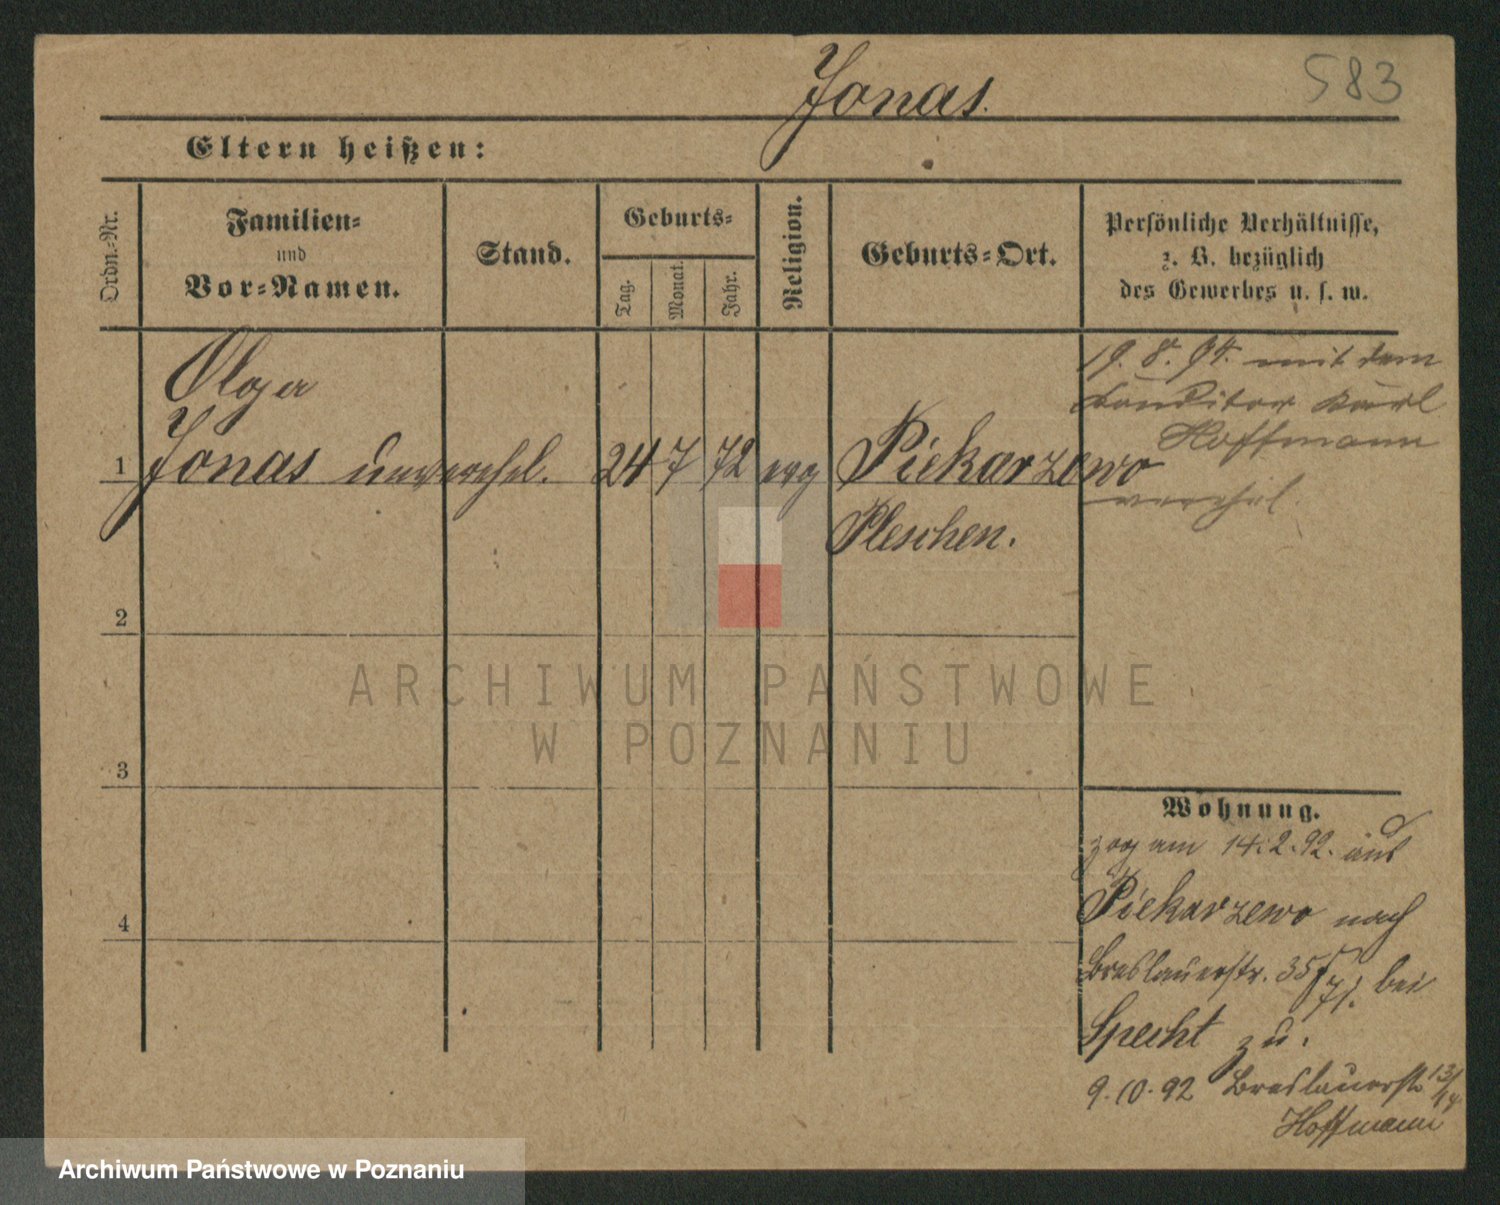 583
Jonas.
Eltern heißen:
Ordn.-Nr.
Familien-
und
Vor-Namen.
Stand.
Geburts-
Tag.
Monat.
Jahr.
Religion.
Geburts-Ort.
Persönliche Verhältnisse,
z. B. bezüglich
des Gewerbes u. s. w.
Olga
1 Jonas unverehel. 24 7 72 evg Piekarzewo
Pleschen.
19. 8. 94. mit dem
Conditor Karl
Hoffmann
verehel.
2
3
4
Wohnung.
zog am 14. 2. 92. aus
Piekarzewo nach
Breslauerstr. 35 bei
Specht zu.
9. 10. 92 Breslauerstr 13/14
Hoffmann
ARCHIWUM PAŃSTWOWE
W POZNANIU
Archiwum Państwowe w Poznaniu